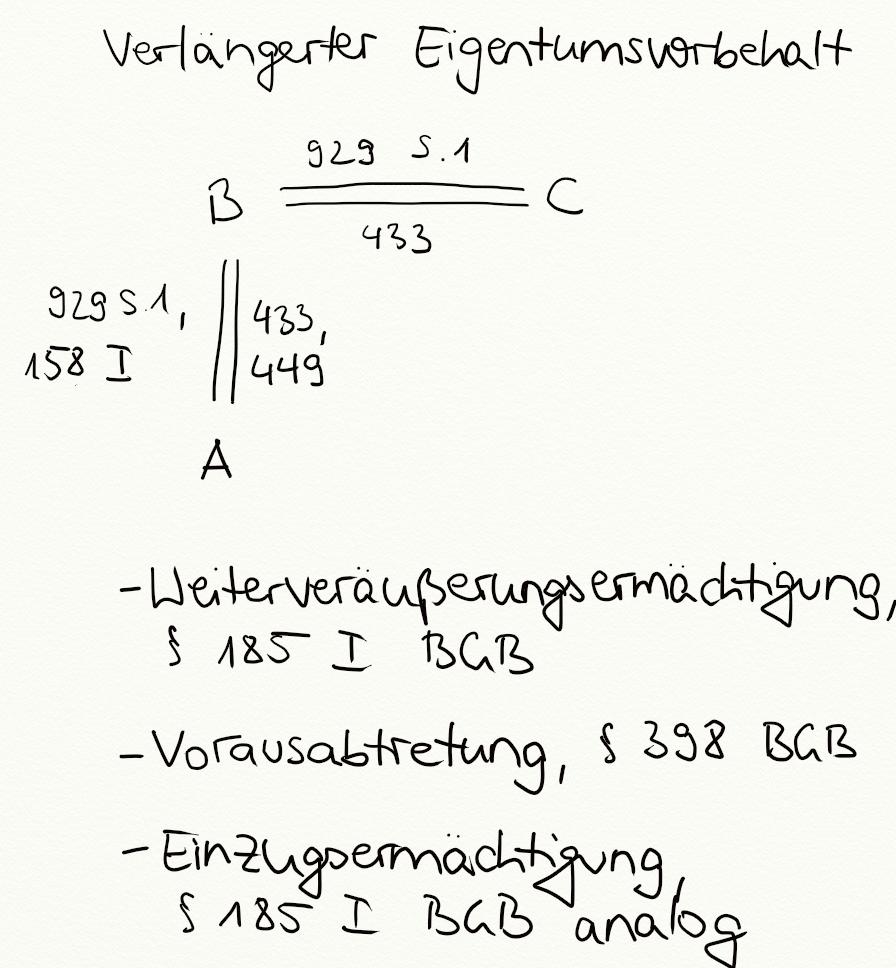 Verlängerter Eigentumsvorbehalt
929 S.1
B C
433
929 S.1, 433,
158 I 449
A
- Weiterveräußerungsermächtigung,
§ 185 I BGB
- Vorausabtretung, § 398 BGB
- Einzugsermächtigung,
§ 185 I BGB analog